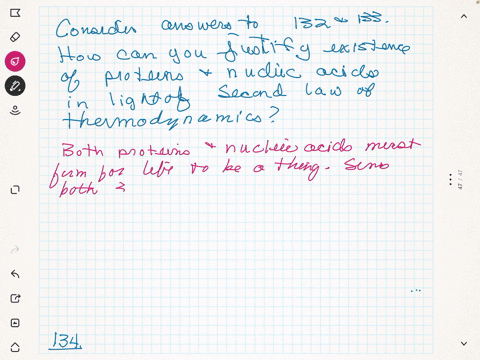 Consider answers to 132 & 133.
How can you justify existence
of proteins & nucleic acids
in light of second law of
thermodynamics?
Both proteins & nucleic acids must
form for life to be a thing. Sins
both
134